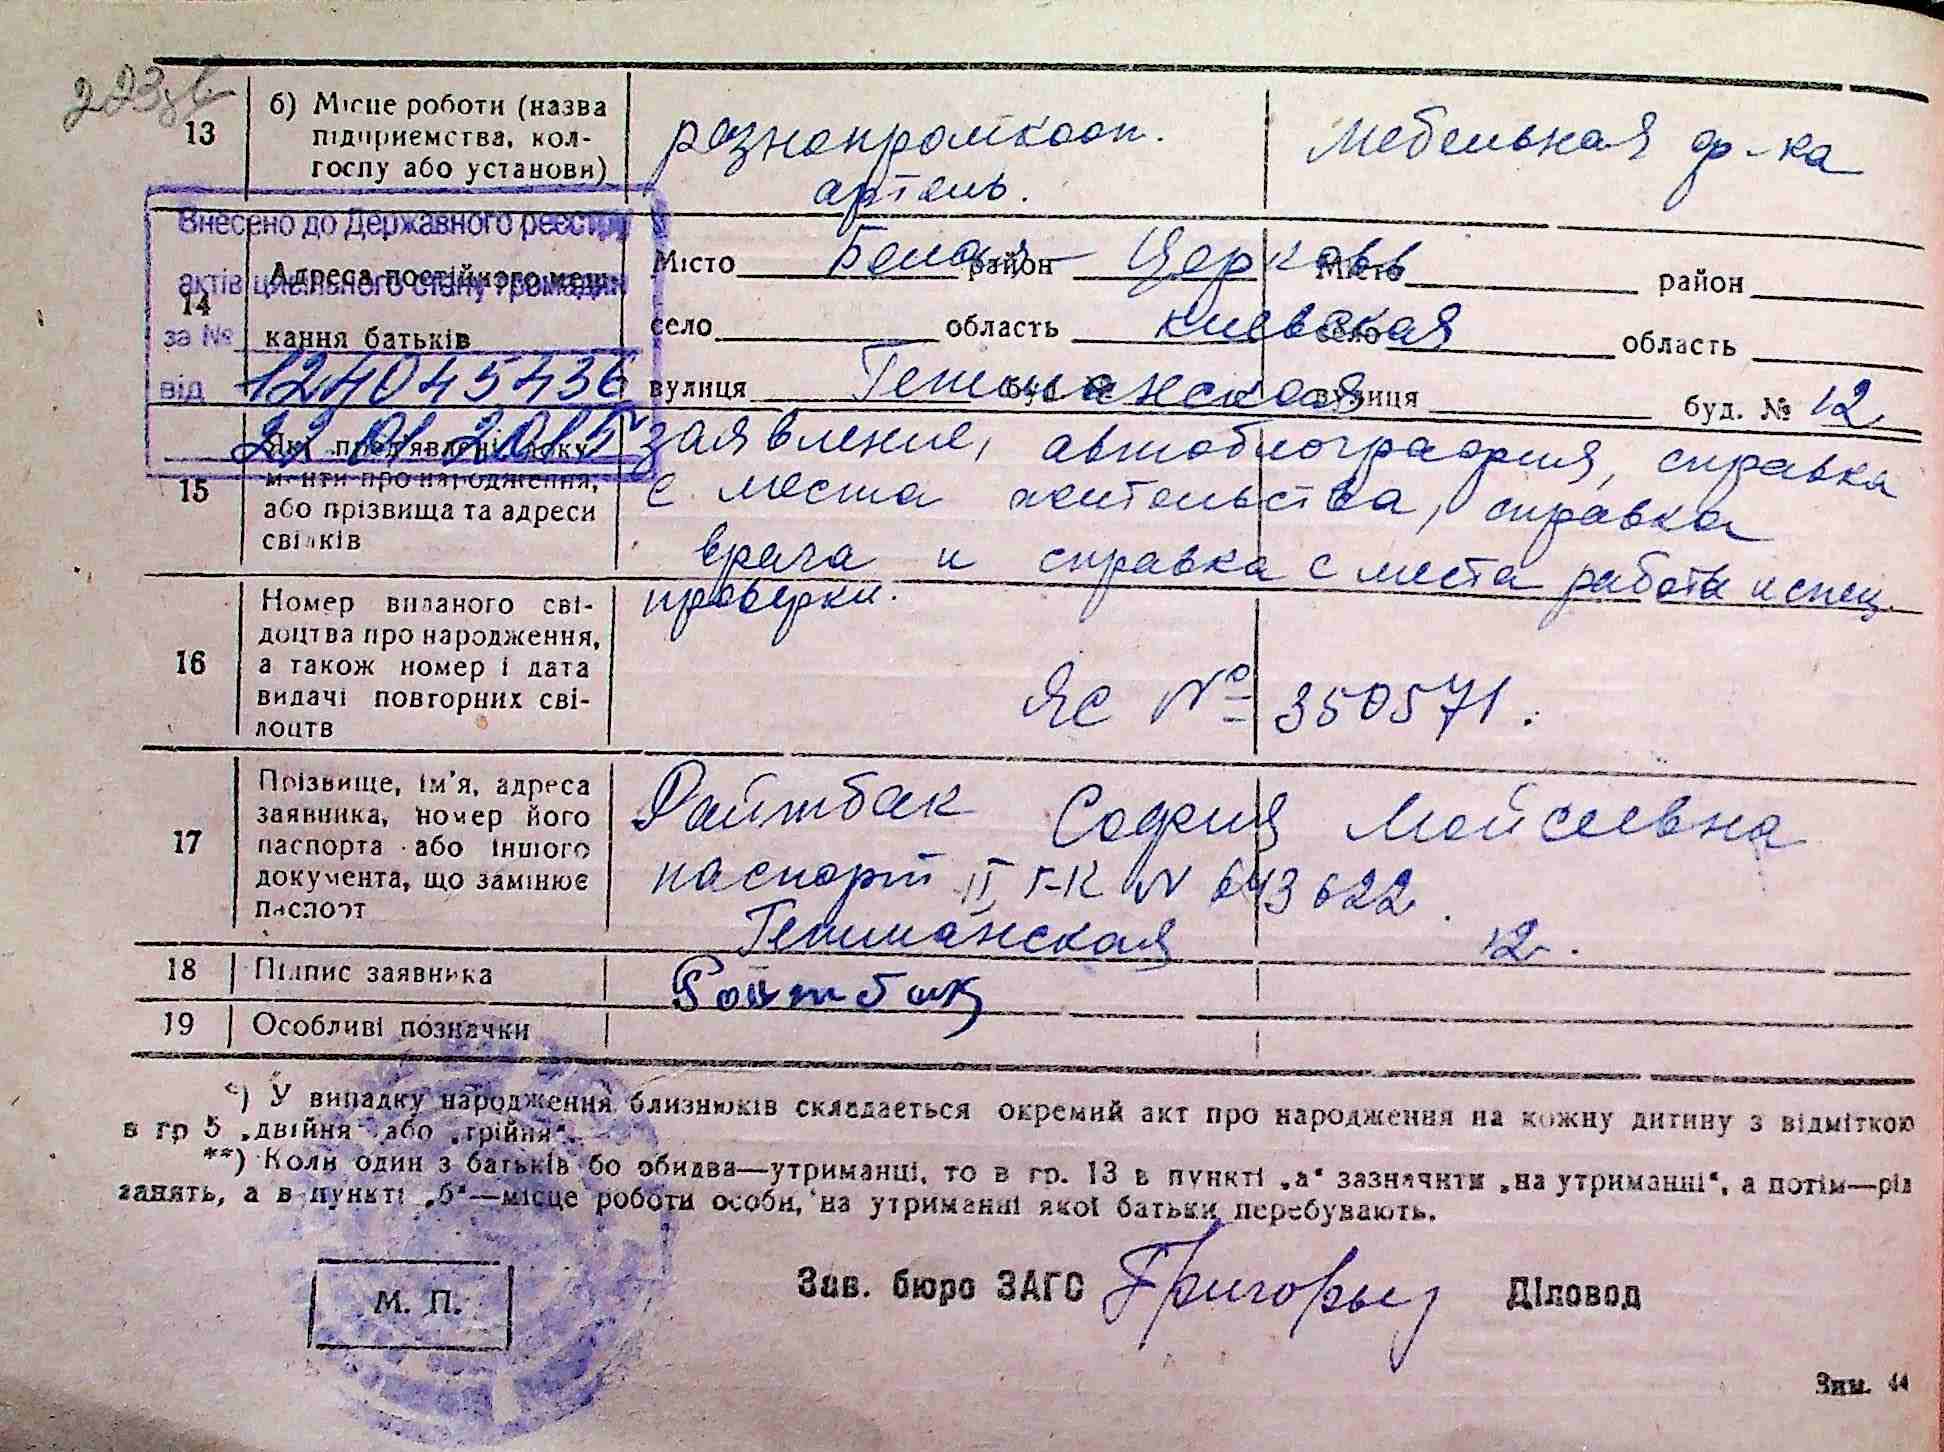 223
13
б) Місце роботи (назва
підприємства, кол-
госпу або установи)
разнопромкооп.
артель.
Мебельная ф-ка
Внесено до Державного реєстру
актів цивільного стану громадян
за №
від 12404545436
22 01 2015
14
Адреса постійного меш-
кання батьків
Місто Белая район Церковь Місто район
село область киевская село область
вулиця Гетманская вулиця буд. № 12
15
Які пред'явлені доку-
менти про народження,
або прізвища та адреси
свідків
заявление, автобиография, справка
с места жительства, справка
врача и справка с места работы и спец.
проверки.
16
Номер виданого сві-
доцтва про народження,
а також номер і дата
видачі повторних сві-
доцтв
ЯС № 350571.
17
Прізвище, ім'я, адреса
заявника, номер його
паспорта або іншого
документа, що замінює
паспорт
Райтбак София Мойсеевна
паспорт II Г-К N 643622.
Гетманская 12.
18 Підпис заявника Ройтбак
19 Особливі позначки
*) У випадку народження близнюків складається окремий акт про народження на кожну дитину з відміткою
в гр 5 „двійня“ або „трійня“.
**) Коли один з батьків бо обидва—утриманці, то в гр. 13 в пункті „а“ зазначити „на утриманні“, а потім—рід
занять, а в пункті „б“—місце роботи особи, на утриманні якої батьки перебувають.
М. П.
Зав. бюро ЗАГС Діловод
Зам. 44